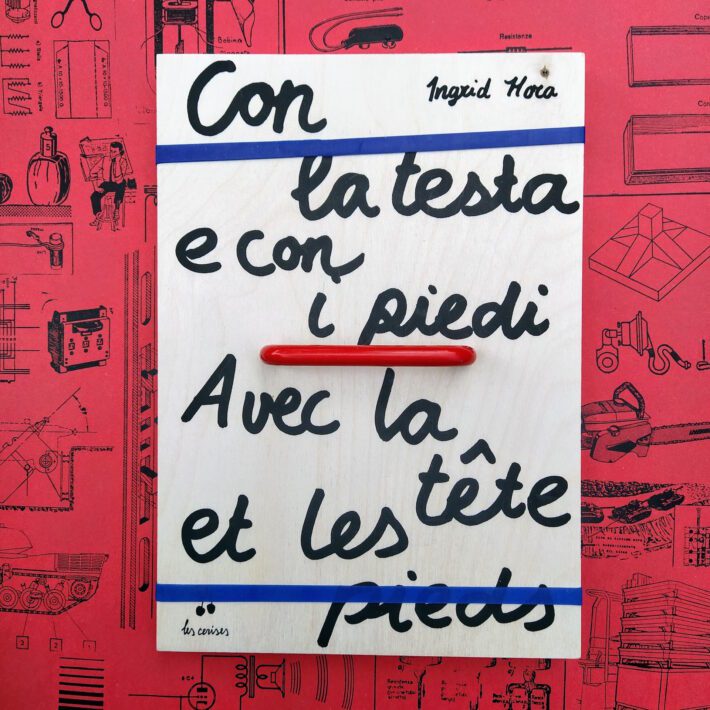 Con
Ingrid Hora
la testa
e con
i piedi
Avec la
tête
et les
pieds
les cerises
Resistenza